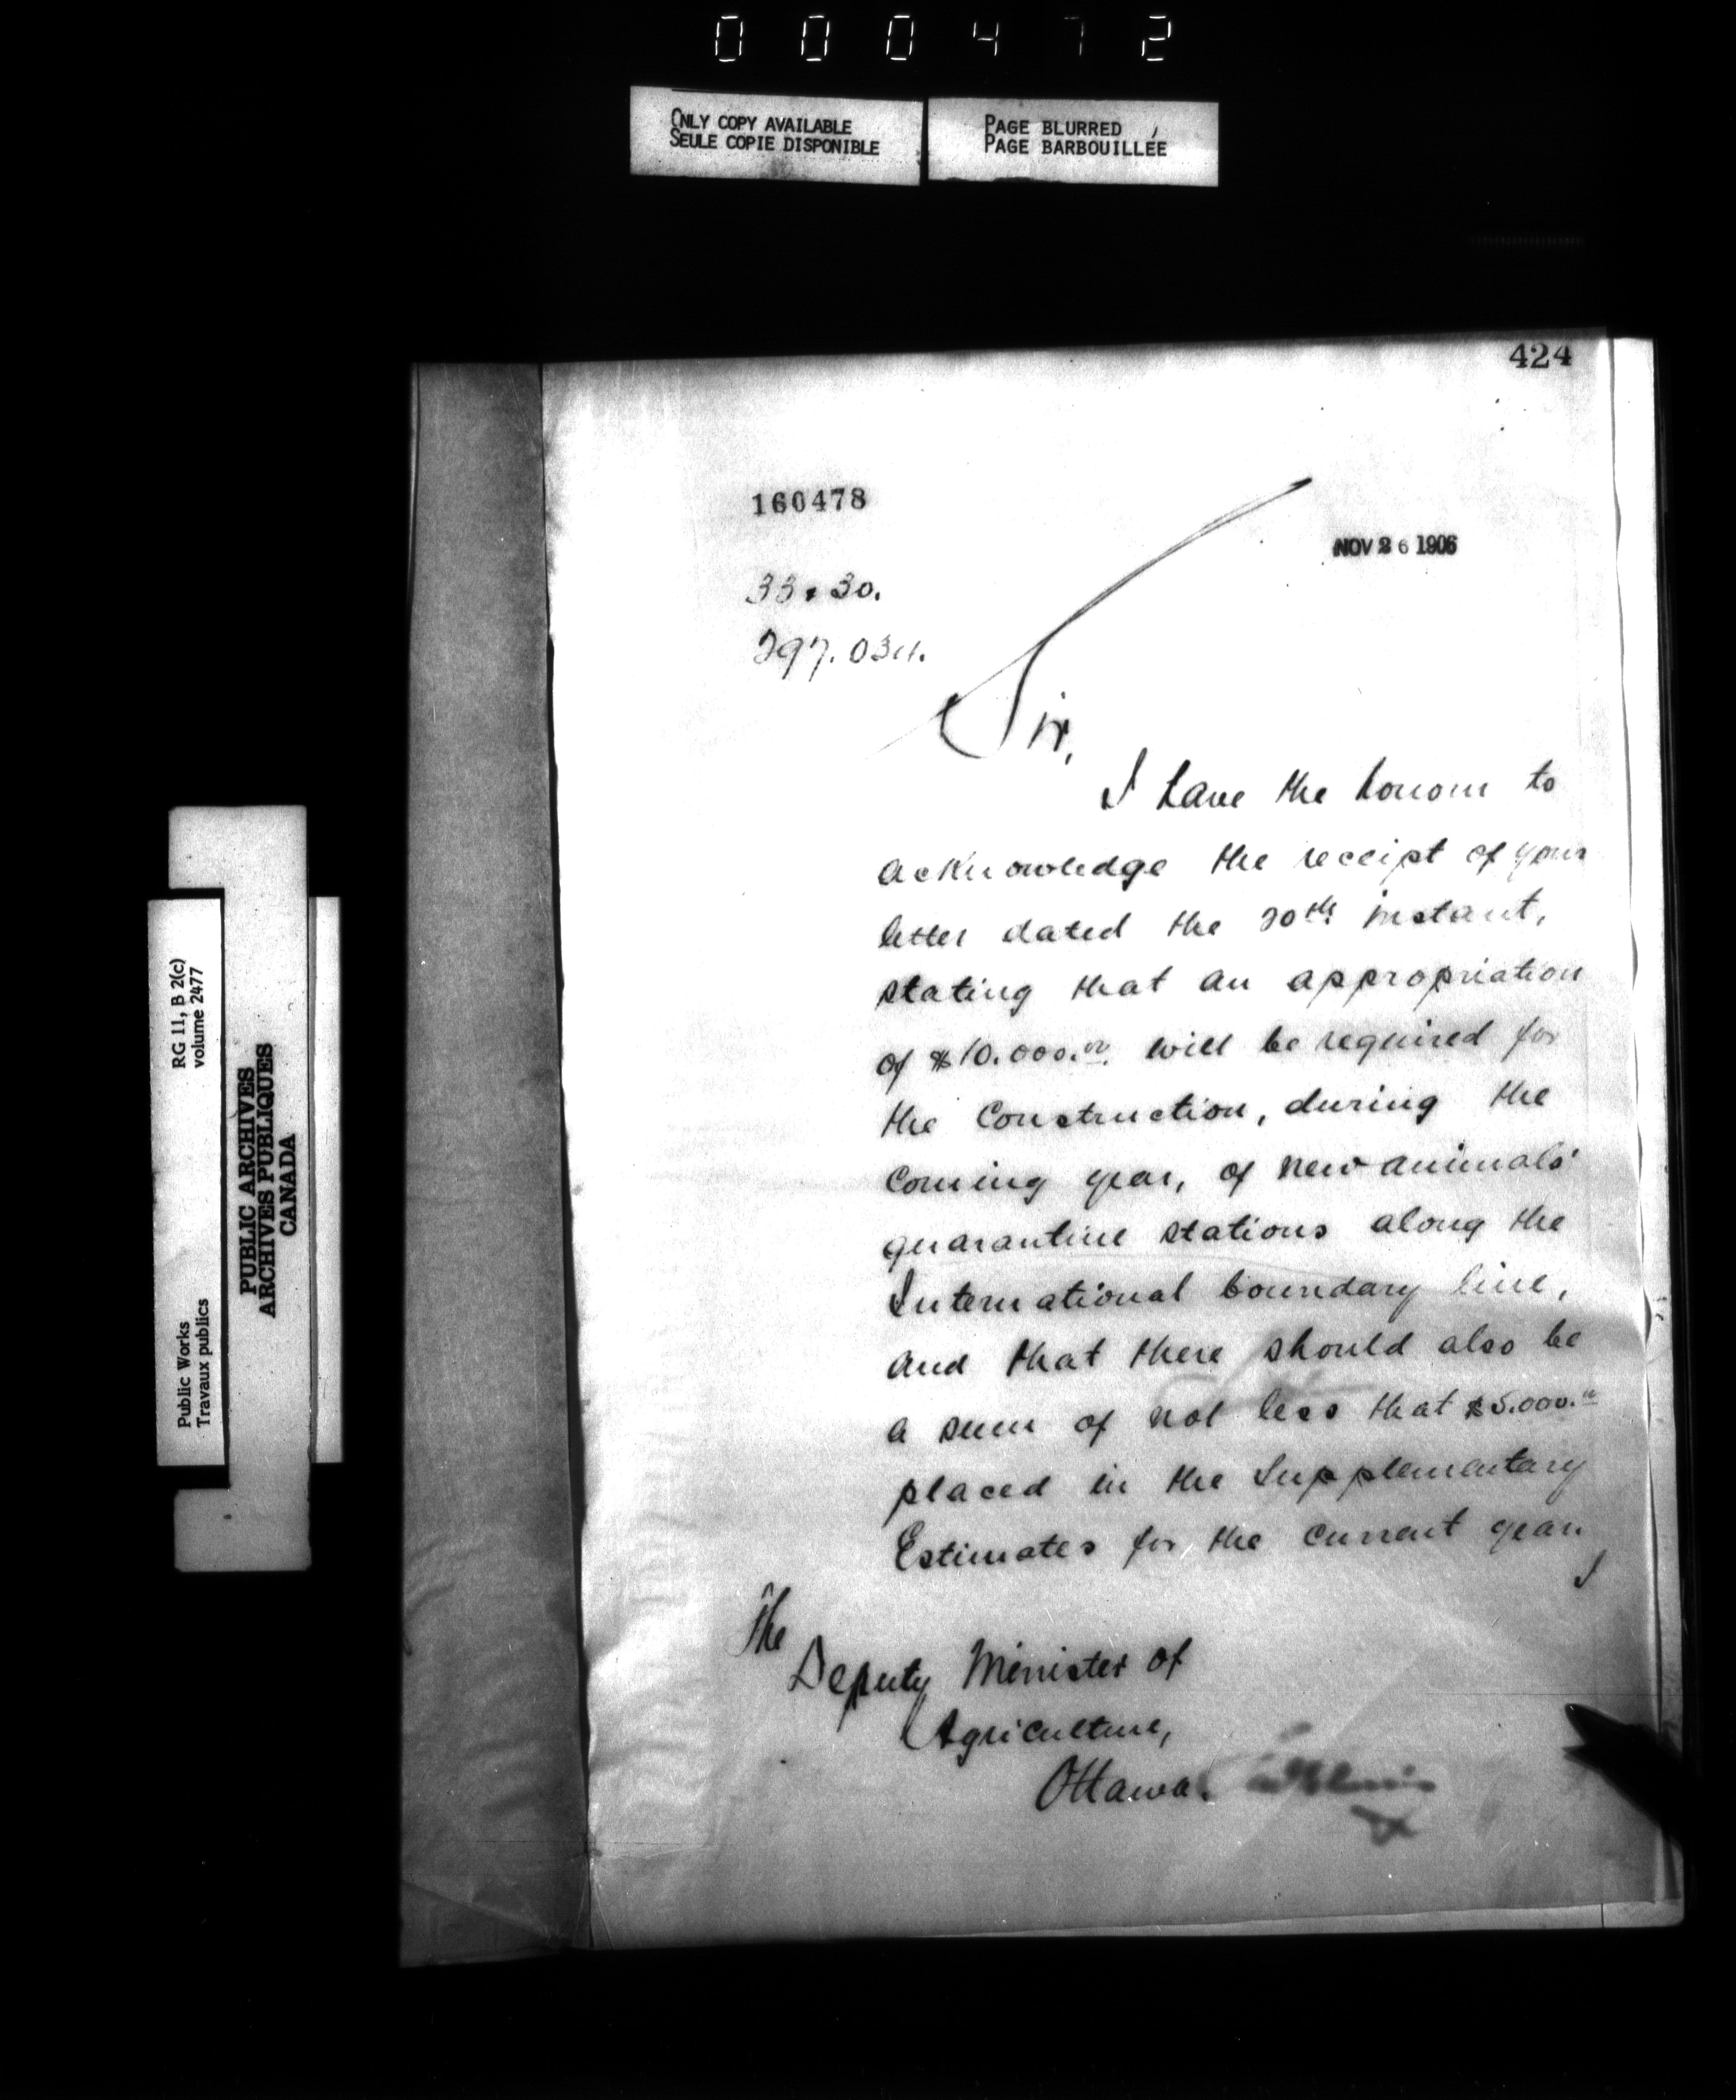 000472
ONLY COPY AVAILABLE
SEULE COPIE DISPONIBLE
PAGE BLURRED
PAGE BARBOUILLÉE
RG 11, B 2(c)
volume 2477
PUBLIC ARCHIVES
ARCHIVES PUBLIQUES
CANADA
Public Works
Travaux publics
424
160478
NOV 26 1906
33 . 30.
297.034.
Sir,
I have the honour to
acknowledge the receipt of your
letter dated the 20th instant,
stating that an appropriation
of $10.000.00 will be required for
the Construction, during the
Coming year, of new animals'
quarantine stations along the
International boundary line,
and that there should also be
a sum of not less that $5.000.00
placed in the Supplementary
Estimates for the current year.
I
The
Deputy Minister of
Agriculture,
Ottawa.